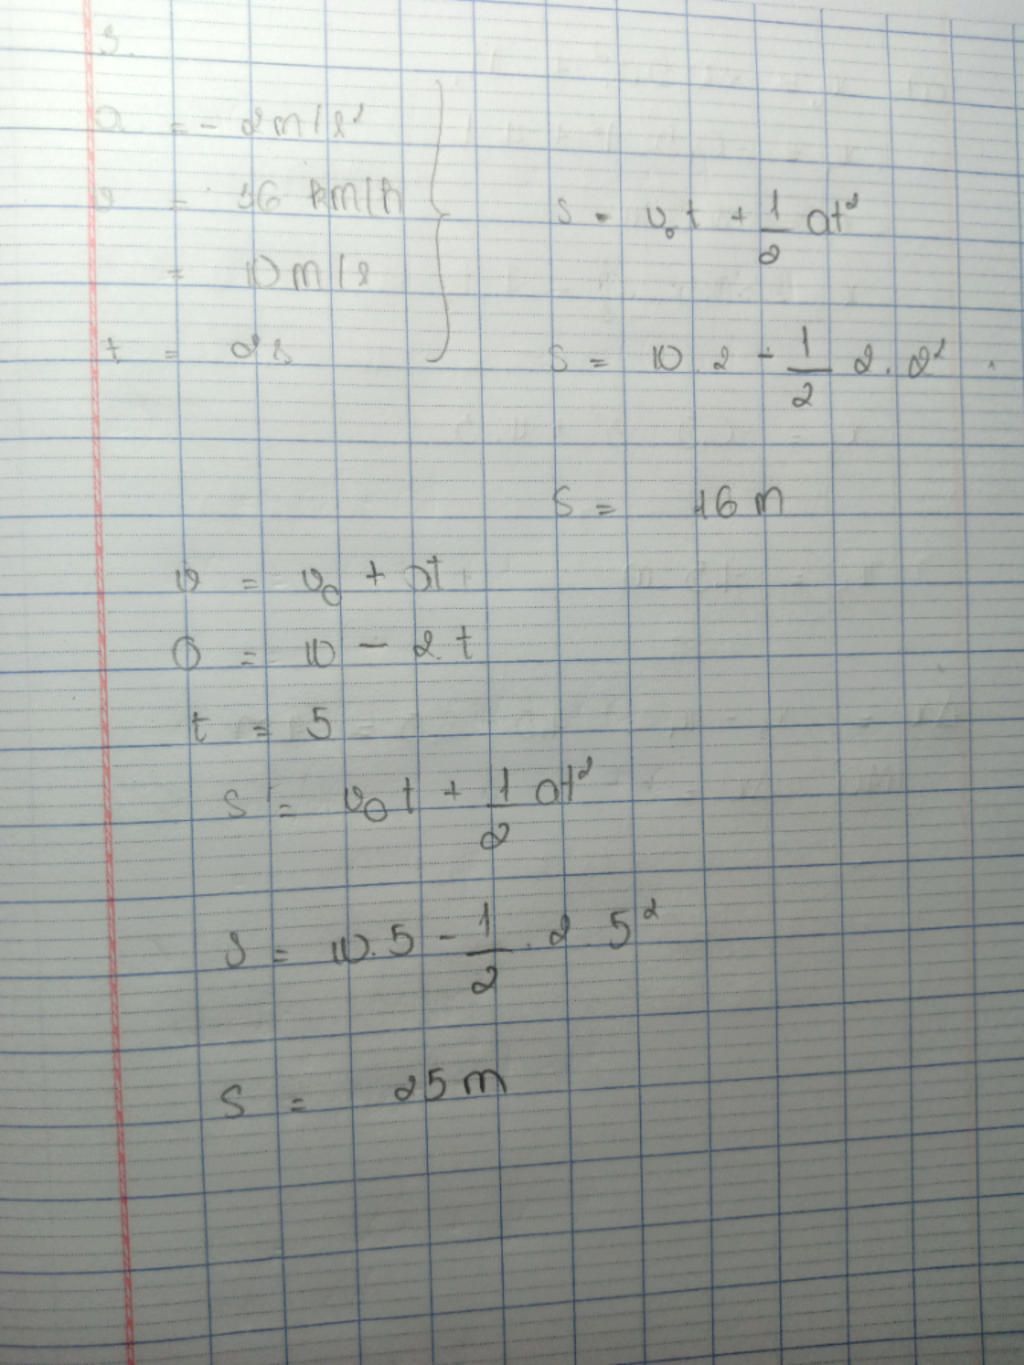 3.
a = - 2m/s²
v = 36 km/h
= 10m/s
t = 2s
s = v₀t + 1/2 at²
s = 10.2 - 1/2 2.2²
s = 16 m
v = v₀ + at
0 = 10 - 2.t
t = 5
s = v₀t + 1/2 at²
s = 10.5 - 1/2 . 2 5²
s = 25 m